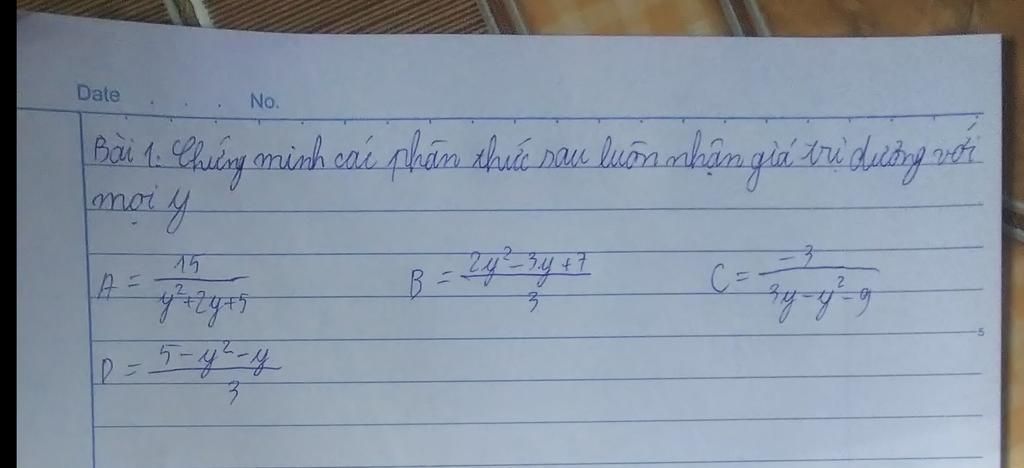 Date . . . No.
Bài 1: Chứng minh cái phân thức sau luôn nhận giá trị dương với
mọi y
A = 15/(y²+2y+5) B = (2y²-3y+7)/3 C = -3/(3y-y²-9)
5
D = (5-y²-y)/3